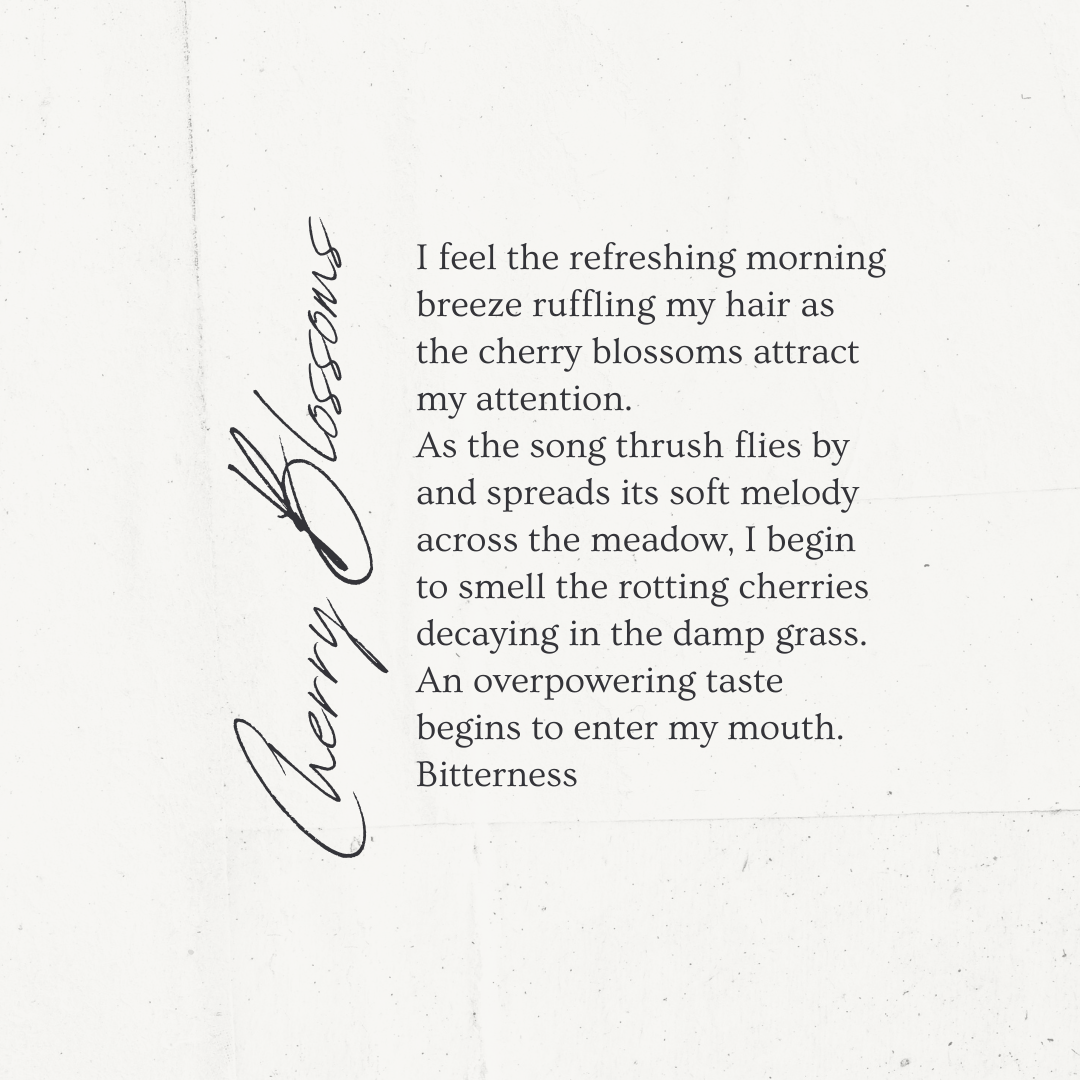 Cherry Blossoms
I feel the refreshing morning
breeze ruffling my hair as
the cherry blossoms attract
my attention.
As the song thrush flies by
and spreads its soft melody
across the meadow, I begin
to smell the rotting cherries
decaying in the damp grass.
An overpowering taste
begins to enter my mouth.
Bitterness